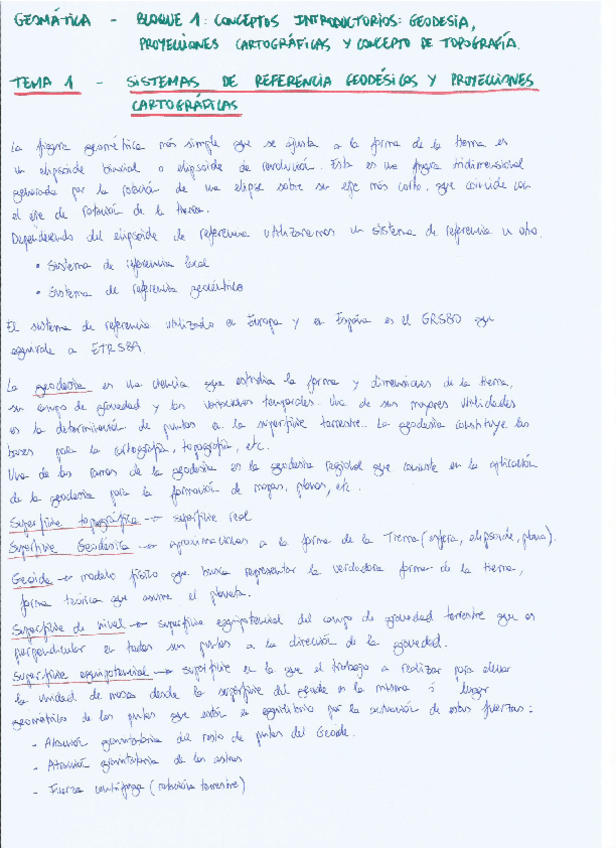 GEOMÁTICA - BLOQUE 1: CONCEPTOS INTRODUCTORIOS: GEODESIA,
PROYECCIONES CARTOGRÁFICAS Y CONCEPTO DE TOPOGRAFÍA.
TEMA 1 - SISTEMAS DE REFERENCIA GEODÉSICOS Y PROYECCIONES
CARTOGRÁFICAS
La figura geométrica más simple que se ajusta a la forma de la tierra es
un elipsoide biaxial o elipsoide de revolución. Esta es una figura tridimensional
generada por la rotación de una elipse sobre su eje más corto, que coincide con
el eje de rotación de la tierra.
Dependiendo del elipsoide de referencia utilizaremos un sistema de referencia u otro.
• Sistema de referencia local
• Sistema de referencia geocéntrico
El sistema de referencia utilizado en Europa y en España es el GRS80 que
equivale a ETRS89.
La geodesia es una ciencia que estudia la forma y dimensiones de la tierra,
su campo de gravedad y las variaciones temporales. Una de sus mayores utilidades
es la determinación de puntos en la superficie terrestre. La geodesia constituye las
bases para la cartografía, topografía, etc.
Una de las ramas de la geodesia es la geodesia regional que consiste en la aplicación
de la geodesia para la formación de mapas, planos, etc.
Superficie topográfica → superficie real
Superficie Geodésica → aproximaciones a la forma de la Tierra (esfera, elipsoide, plano).
Geoide → modelo físico que busca representar la verdadera forma de la tierra,
forma teórica que asume el planeta.
Superficie de nivel → superficie equipotencial del campo de gravedad terrestre que es
perpendicular en todos sus puntos a la dirección de la gravedad.
Superficie equipotencial → superficie en la que el trabajo a realizar para elevar
la unidad de masa desde la superficie del geoide es la misma ó lugar
geométrico de los puntos que están en equilibrio por la actuación de estas fuerzas:
- Atracción gravitatoria del resto de puntos del Geoide.
- Atracción gravitatoria de los astros
- Fuerza centrífuga (rotación terrestre)